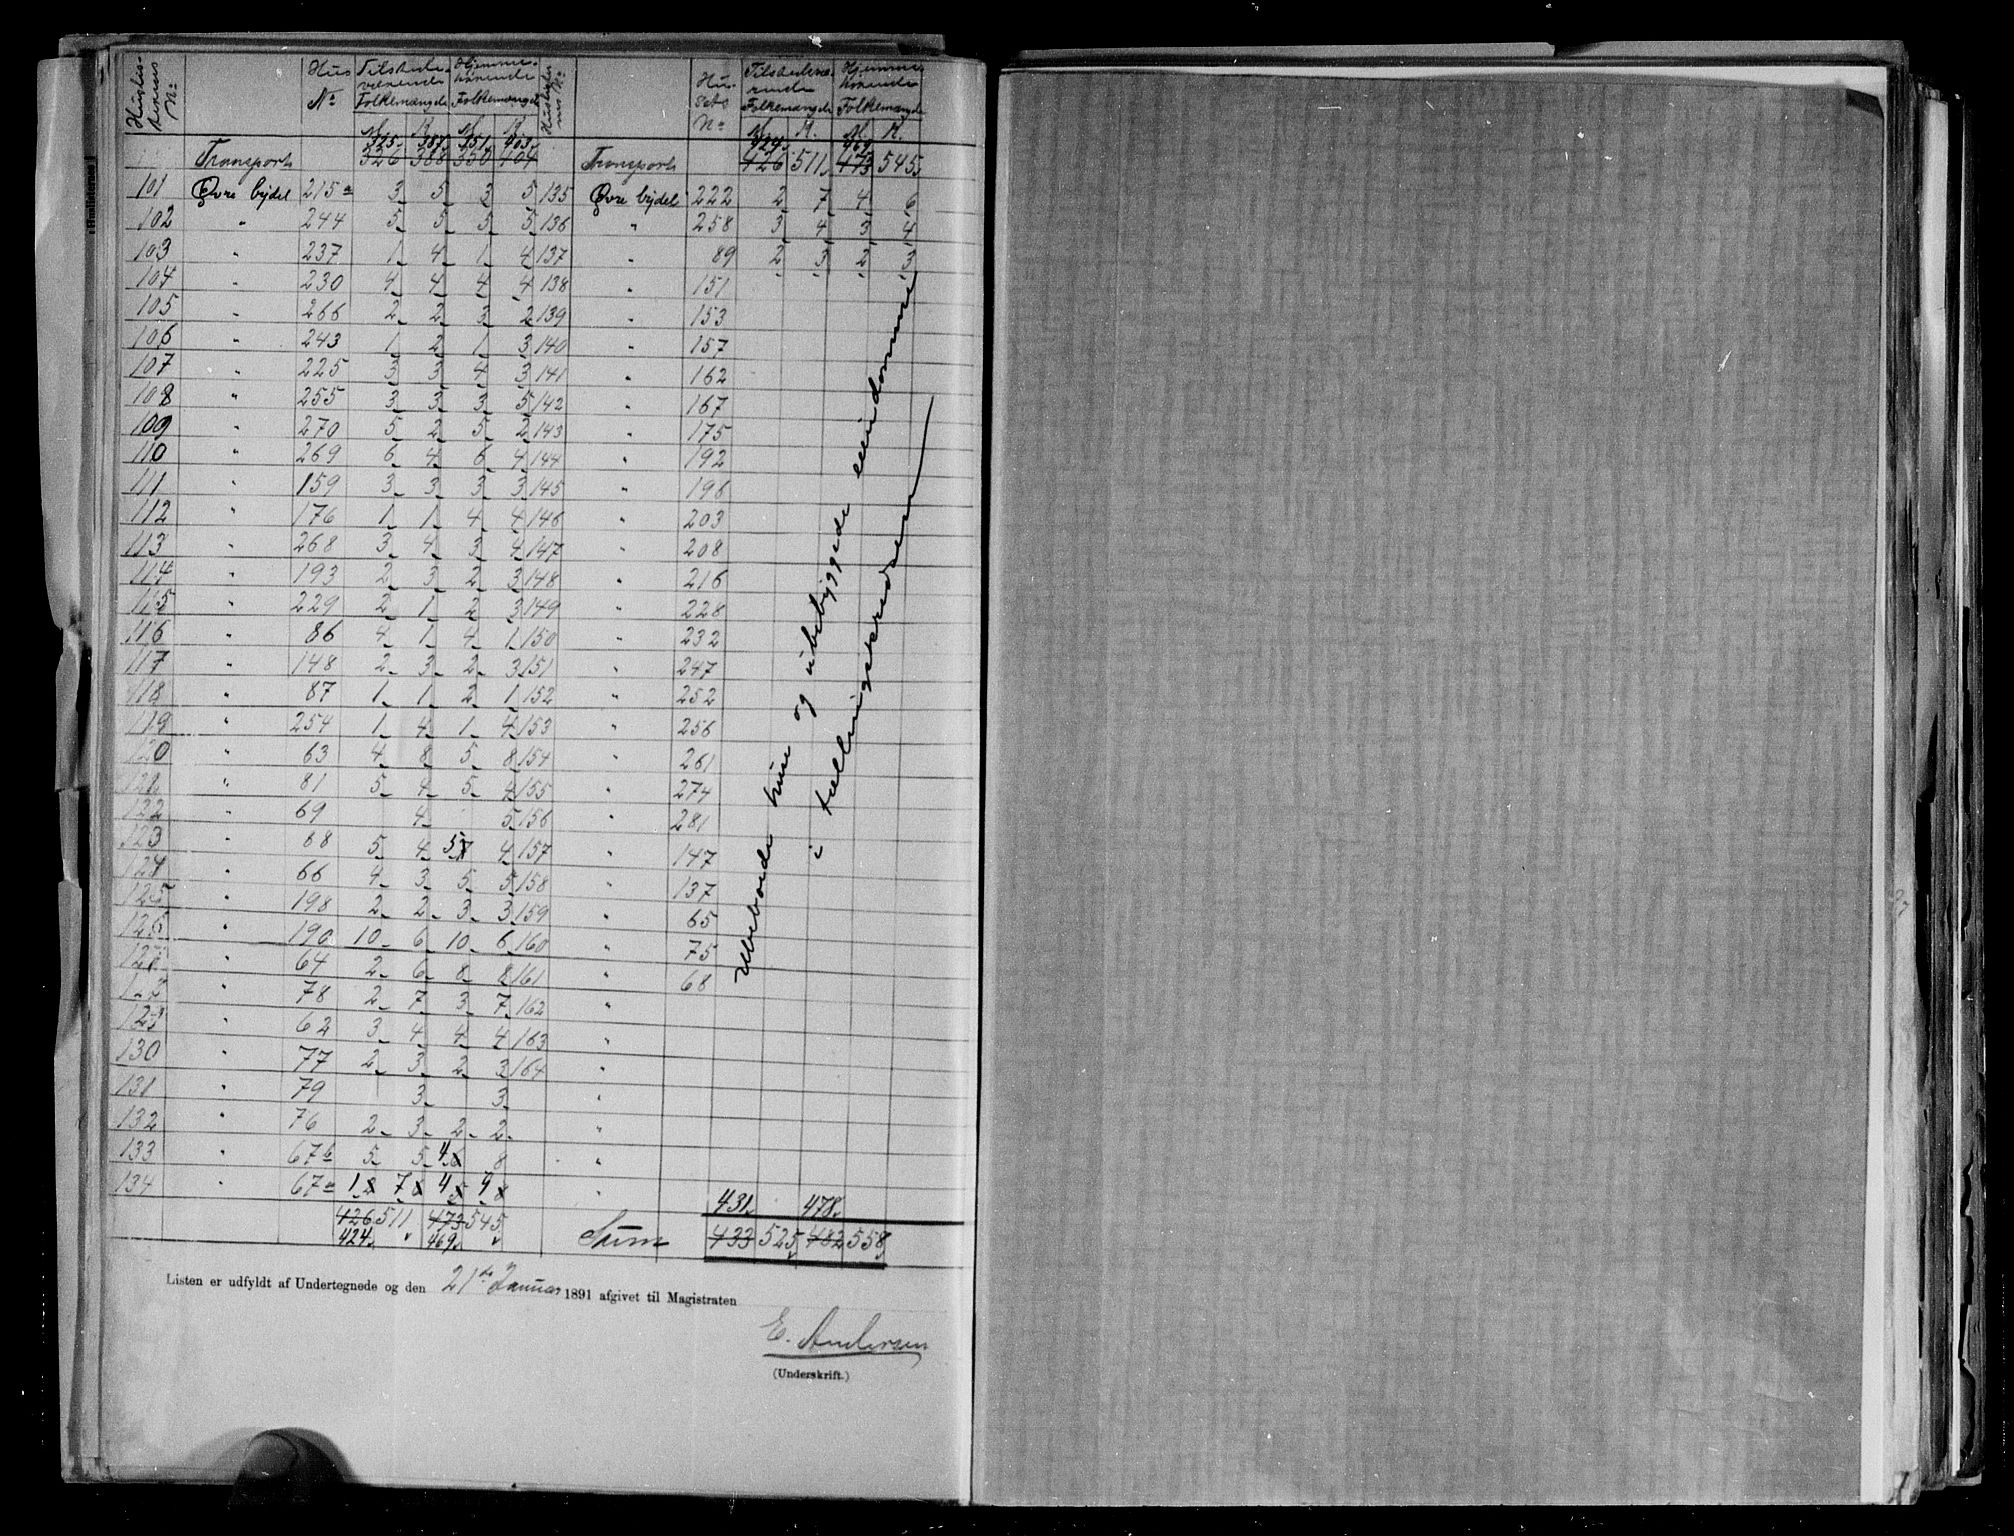 Huslis- Hus Tilstede- Hjemme- Huslis- Hu- Tilstedevæ- Hjemme-
ternes værende hørende sets rende hørende
No No Folkemængde Folkemængde No No Folkemængde Folkemængde
M. K. M. K. M. K. M. K.
325 387 351 403 424 469
Transport 326 388 350 404 Transport 426 511 473 545
101 Øvre bydel 215a 3 5 3 5 135 Øvre bydel 222 2 7 4 6
102 " 244 5 5 5 5 136 " 258 3 4 3 4
103 " 237 1 4 1 4 137 " 89 2 3 2 3
104 " 230 4 4 4 4 138 " 151 " " " "
105 " 266 2 2 3 2 139 " 153
106 " 243 1 2 1 3 140 " 157
107 " 225 3 3 4 3 141 " 162
108 " 255 3 3 3 5 142 " 167
109 " 270 5 2 5 2 143 " 175
110 " 269 6 4 6 4 144 " 192
111 " 159 3 3 3 3 145 " 196
112 " 176 1 1 4 4 146 " 203
113 " 268 3 4 3 4 147 " 208
114 " 193 2 3 2 3 148 " 216
115 " 229 2 1 2 3 149 " 228
116 " 86 4 1 4 1 150 " 232
117 " 148 2 3 2 3 151 " 247
118 " 87 1 1 2 1 152 " 252
119 " 254 1 4 1 4 153 " 256
120 " 63 4 8 5 8 154 " 261
121 " 81 5 4 5 4 155 " 274
122 " 69 4 5 156 " 281
123 " 88 5 4 5 4 157 " 147
124 " 66 4 3 5 5 158 " 137
125 " 198 2 2 3 3 159 " 65
126 " 190 10 6 10 6 160 " 75
127 " 64 2 6 8 8 161 " 68
128 " 78 2 7 3 7 162 "
129 " 62 3 4 4 4 163 "
130 " 77 2 3 2 3 164 "
131 " 79 3 3 "
132 " 76 2 3 2 2 "
133 " 67b 5 5 4 6 8 "
134 " 67a 1 2 7 8 4 5 4 8 "
ubeboede huse og ubebyggede eiendomme
i tællingskredsen
431 478
426 511 473 545 Sum 433 525 482 558
424 469
Listen er udfyldt af Undertegnede og den 21de Januar 1891 afgivet til Magistraten
E. Andersen
(Underskrift.)